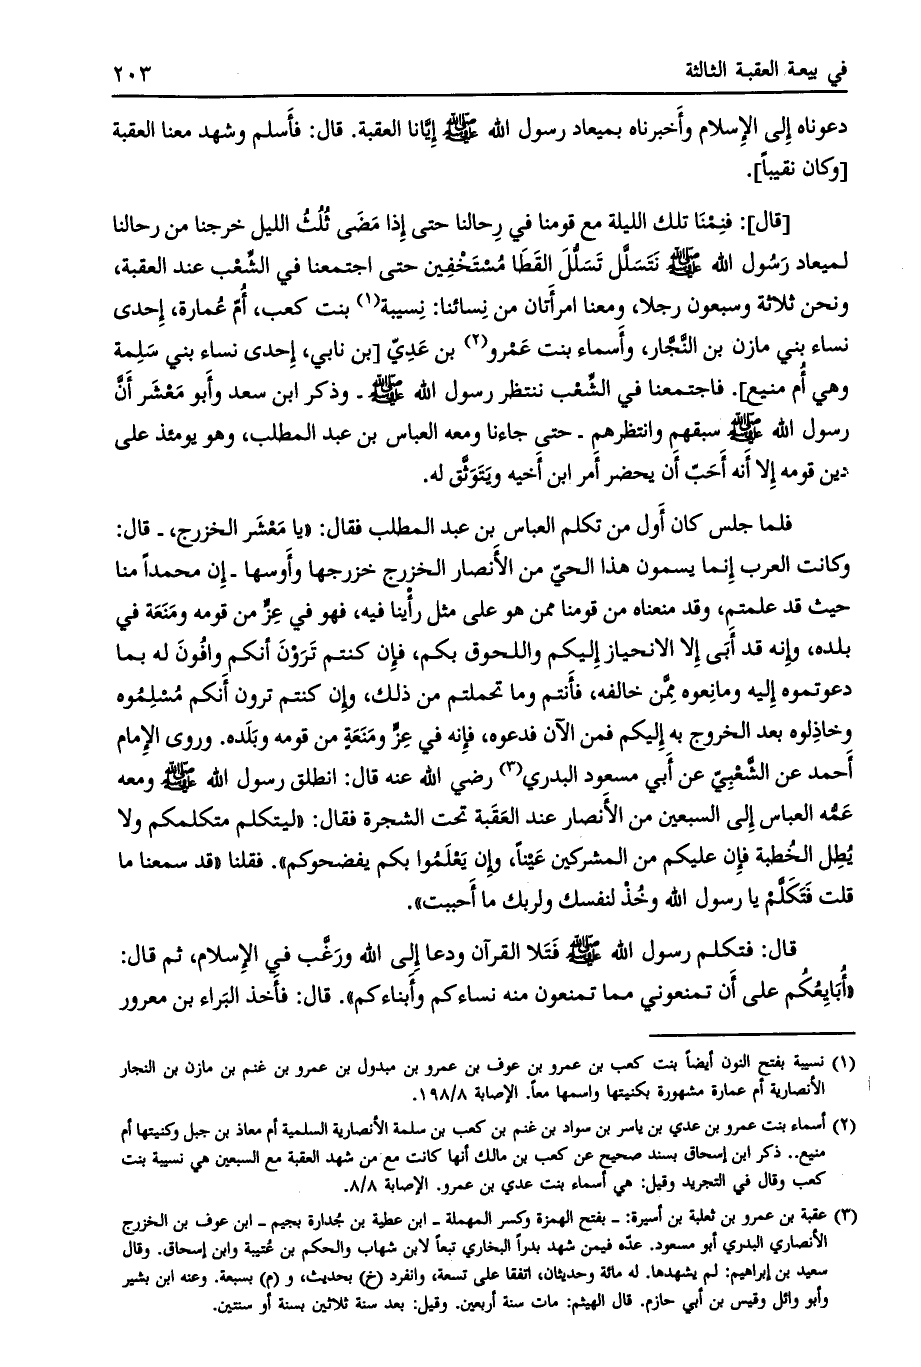 في بيعة العقبة الثالثة ٢٠٣
دعوناه إلى الإسلام وأَخبرناه بميعاد رسول الله ﷺ إِيَّانا العقبة. قال: فأَسلم وشهد معنا العقبة
[وكان نقيباً].
[قال]: فَنِمْنَا تلك الليلة مع قومنا في رِحالنا حتى إِذا مَضَى ثُلُثُ الليل خرجنا من رحالنا
لميعاد رَسُول الله ﷺ نَتَسَلَّل تَسَلُّلَ القَطَا مُسْتَخْفِين حتى اجتمعنا في الشِّعْب عند العقبة،
ونحن ثلاثة وسبعون رجلا، ومعنا امرأَتان من نِسائنا: نِسيبة(١) بنت كعب، أُمّ عُمارة، إِحدى
نساء بني مازن بن النَّجَّار، وأَسماء بنت عَمْرو(٢) بن عَدِيّ [بن نابي، إِحدى نساء بني سَلِمة
وهي أُم منيع]. فاجتمعنا في الشِّعْب ننتظر رسول الله ﷺ - وذكر ابن سعد وأَبو مَعْشَر أَنَّ
رسول الله ﷺ سبقهم وانتظرهم - حتى جاءنا ومعه العباس بن عبد المطلب، وهو يومئذ على
دين قومه إِلا أَنه أَحَبّ أَن يحضر أَمر ابن أَخيه ويَتَوَثَّق له.
فلما جلس كان أَول من تكلم العباس بن عبد المطلب فقال: «يا مَعْشَر الخزرج، - قال:
وكانت العرب إِنما يسمون هذا الحيّ من الأَنصار الخزرج خزرجها وأَوسها - إِن محمداً منا
حيث قد علمتم، وقد منعناه من قومنا ممن هو على مثل رأْينا فيه، فهو في عِزٍّ من قومه ومَنَعَة في
بلده، وإِنه قد أَبَى إِلا الانحياز إِليكم واللحوق بكم، فإِن كنتم تَرَوْنَ أَنكم وافُونَ له بما
دعوتموه إليه ومانِعوه مِمَّن خالفه، فأَنتم وما تحملتم من ذلك، وإِن كنتم ترون أَنكم مُسْلِمُوه
وخاذِلوه بعد الخروج به إِليكم فمن الآن فدعوه، فإِنه في عِزٍّ ومَنَعَةٍ من قومه وبَلَده. وروى الإِمام
أَحمد عن الشَّعْبِيّ عن أَبي مسعود البدري(٣) رضي الله عنه قال: انطلق رسول الله ﷺ ومعه
عَمُّه العباس إِلى السبعين من الأَنصار عند العَقَبة تحت الشجرة فقال: «ليتكلم متكلمكم ولا
يُطِل الخُطبة فإِن عليكم من المشركين عَيْناً، وإِن يَعْلَمُوا بكم يفضحوكم». فقلنا «قد سمعنا ما
قلت فَتَكَلَّمْ يا رسول الله وخُذْ لنفسك ولربك ما أَحببت».
قال: فتكلم رسول الله ﷺ فَتَلا القرآن ودعا إِلى الله ورَغَّب في الإِسلام، ثم قال:
«أُبَايِعُكُم على أَن تمنعوني مما تمنعون منه نساءكم وأَبناءكم». قال: فأَخذ البَراء بن معرور
(١) نسيبة بفتح النون أيضاً بنت كعب بن عمرو بن عوف بن عمرو بن مبدول بن عمرو بن غنم بن مازن بن النجار
الأنصارية أم عمارة مشهورة بكنيتها واسمها معاً. الإصابة ١٩٨/٨.
(٢) أسماء بنت عمرو بن عدي بن ياسر بن سواد بن غنم بن كعب بن سلمة الأنصارية السلمية أم معاذ بن جبل وكنيتها أم
منيع.. ذكر ابن إسحاق بسند صحيح عن كعب بن مالك أنها كانت مع من شهد العقبة مع السبعين هي نسيبة بنت
كعب وقال في التجريد وقيل: هي أسماء بنت عدي بن عمرو. الإصابة ٨/٨.
(٣) عقبة بن عمرو بن ثعلبة بن أسيرة: - بفتح الهمزة وكسر المهملة - ابن عطية بن جُدارة بجيم - ابن عوف بن الخزرج
الأنصاري البدري أبو مسعود. عدّه فيمن شهد بدراً البخاري تبعاً لابن شهاب والحكم بن عُتيبة وابن إسحاق. وقال
سعيد بن إبراهيم: لم يشهدها. له مائة وحديثان، اتفقا على تسعة، وانفرد (خ) بحديث، و (م) بسبعة. وعنه ابن بشير
وأبو وائل وقيس بن أبي حازم. قال الهيثم: مات سنة أربعين. وقيل: بعد سنة ثلاثين بسنة أو سنتين.